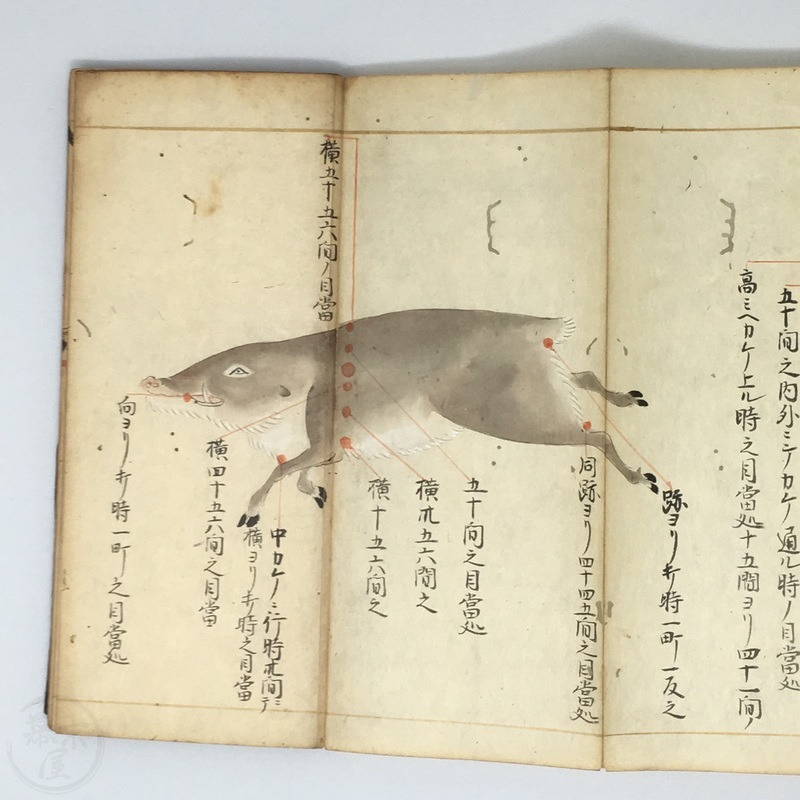 五十間之内外ミシカケ通ル時ノ目當処
高ミヘカケ上ル時之目當処十五間ヨリ四十一間ノ
跡ヨリ打時一町一反之
同跡ヨリ四十四五間之目當処
五十間之目當処
横廿五六間之
横十五六間之
横五十五六間ノ目當
中カケノミ行時廿間ニテ
横ヨリ打時之目當
横四十五六間之目當
向ヨリ打時一町之目當処